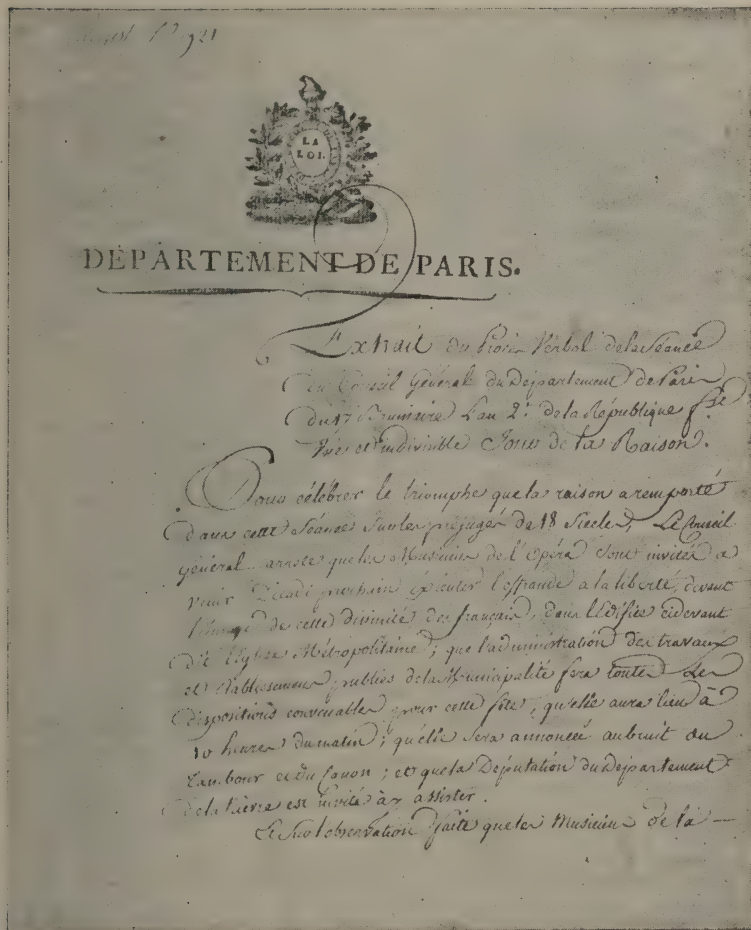 921
LA
LOI.
DÉPARTEMENT DE PARIS.
Extrait du Procès Verbal de la Séance
du Conseil Général du Département de Paris
du 17 Brumaire L'an 2e. de la République fse
Une et indivisible Jour de la Raison.
Pour célébrer le triomphe que la raison a remporté
dans cette Séance sur les préjugés de 18 Siecles, Le Conseil
général arrete que les Musiciens de l'Opéra sont invités a
venir Décadi prochain exécuter l'offrande a la liberté, devant
l'image de cette divinité des français, dans l'Edifice cidevant
dit l'Eglise Métropolitaine; que l'administration des travaux
et établissemens publics de la Municipalité fera toutes Les
dispositions convenables pour cette fête, qu'elle aura lieu à
10 heures du matin; qu'elle sera annoncée au bruit du
Tambour et du Canon; et que la Députation du Département
de la Nièvre est invité à y assister.
Et Sur l'observation faite que les Musiciens de la —